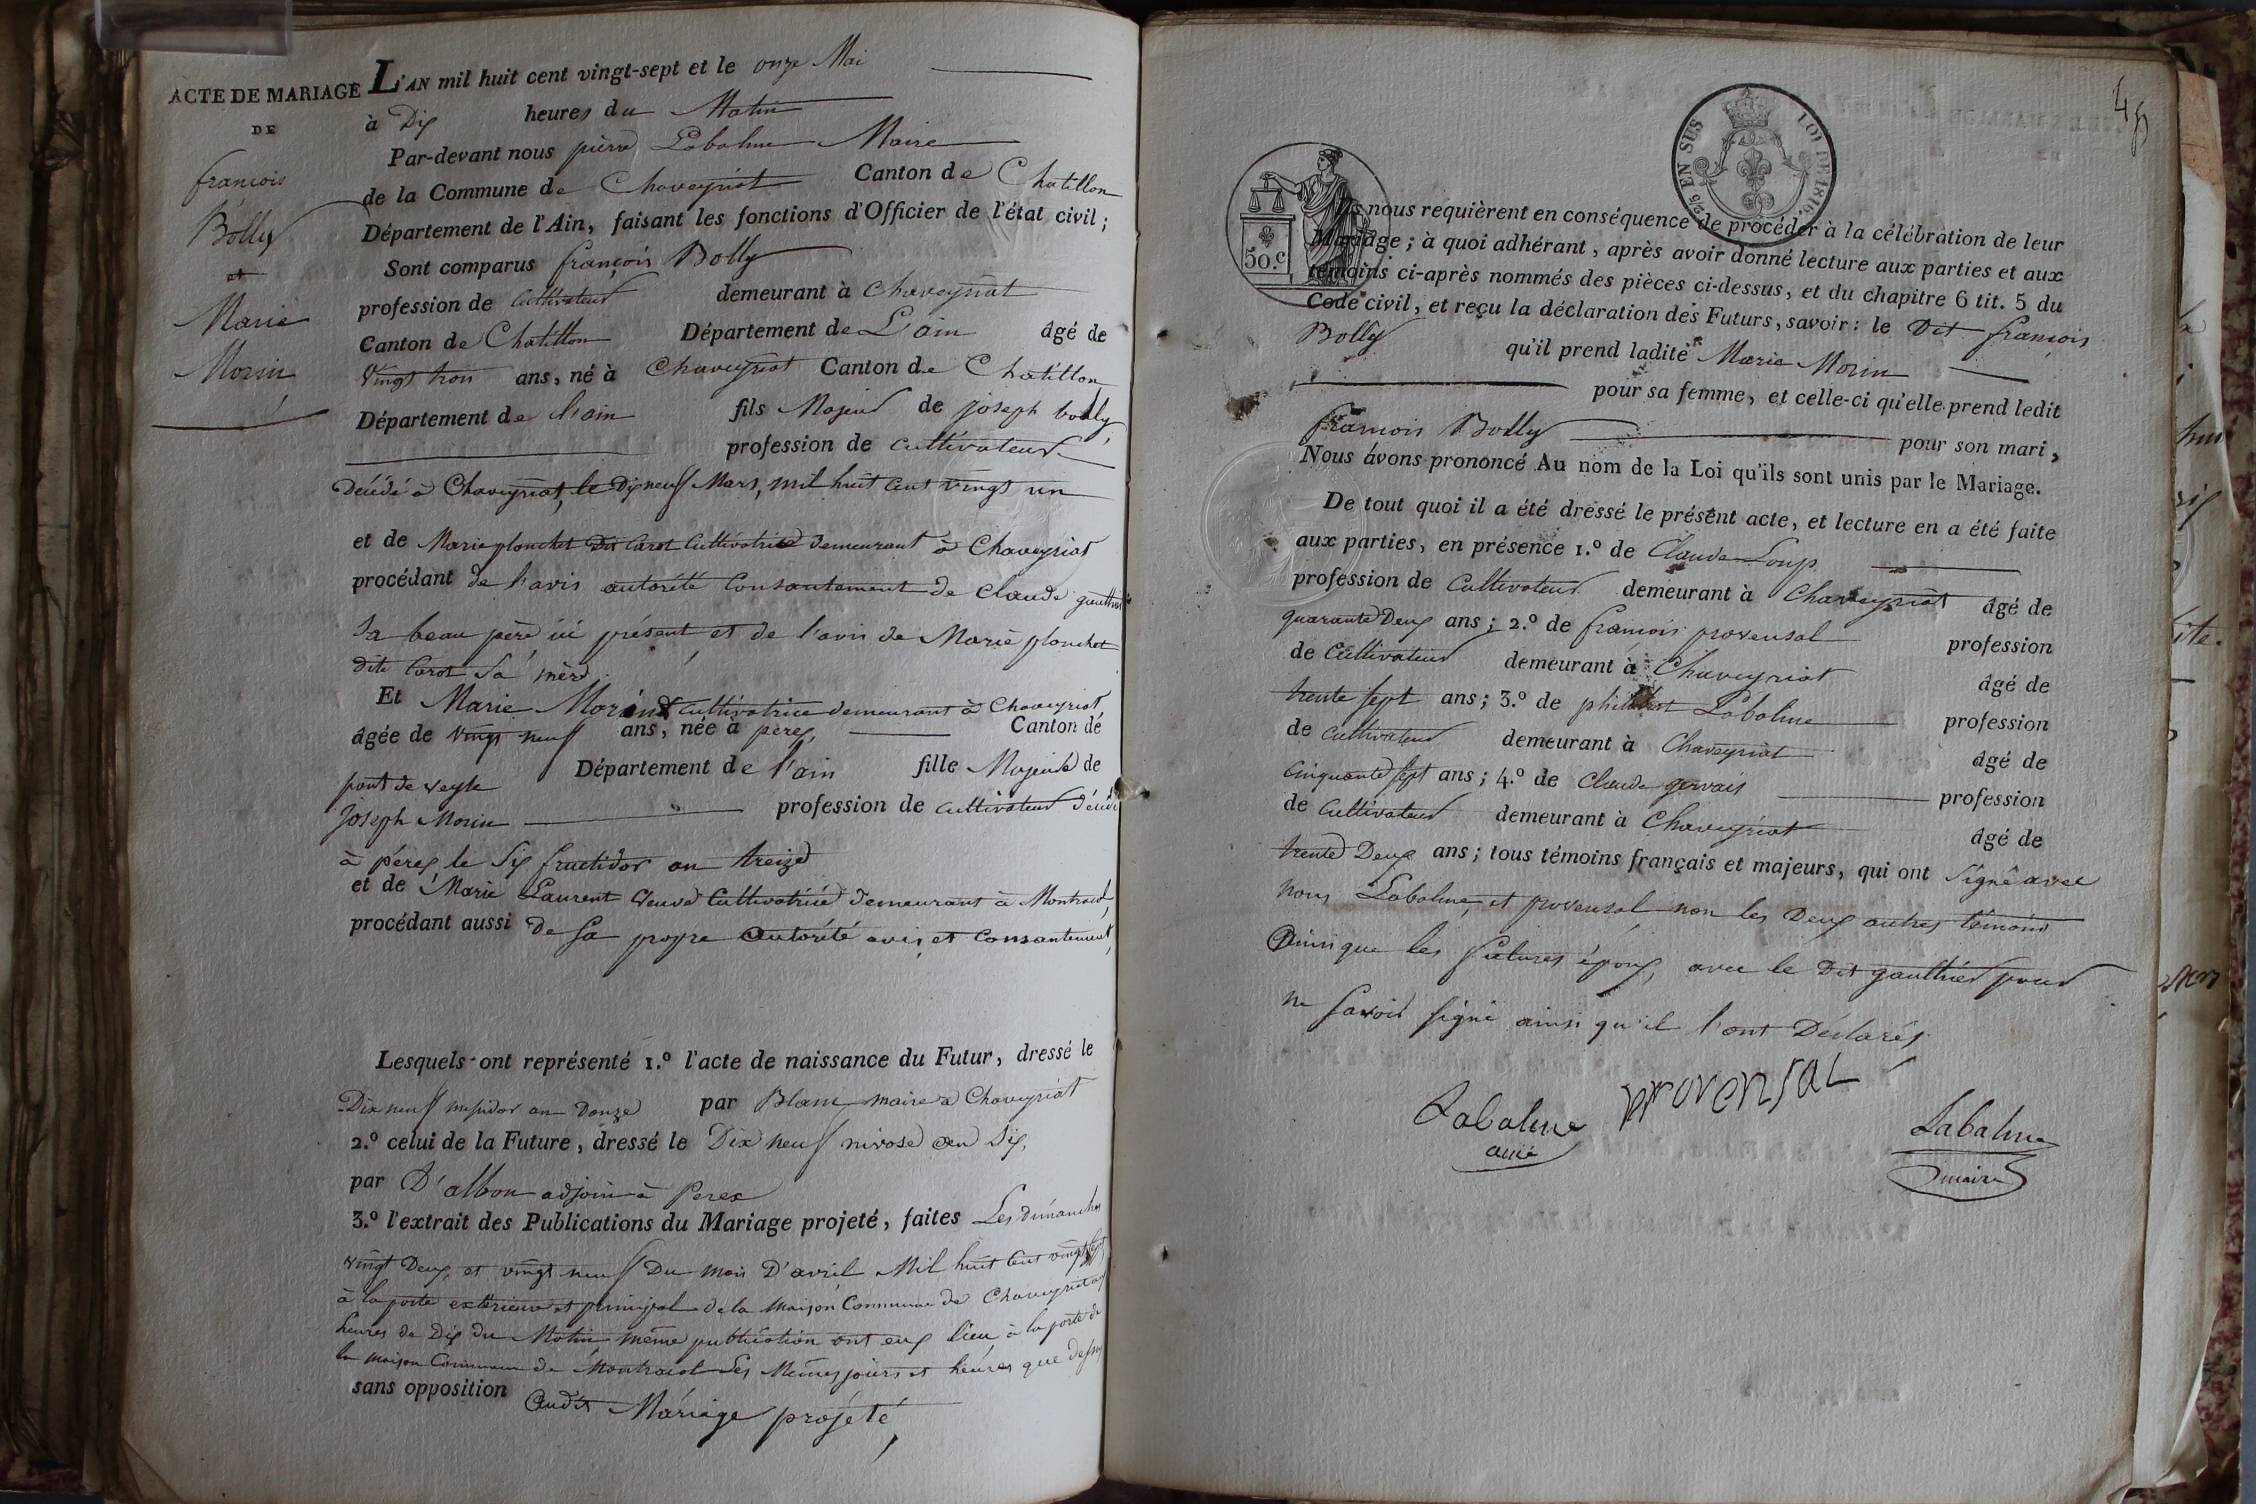 ACTE DE MARIAGE
DE
françois
Bolly
et
Marie
Morin
L'AN mil huit cent vingt-sept et le onze Mai
à Dix heures du Matin
Par-devant nous pierre Labalme Maire
de la Commune de Chaveyriat Canton de Chatillon
Département de l'Ain, faisant les fonctions d'Officier de l'état civil;
Sont comparus françois Bolly
profession de cultivateur demeurant à Chaveyriat
Canton de Chatillon Département de L'ain âgé de
vingt trois ans, né à Chaveyriat Canton de Chatillon
Département de l'ain fils Majeur de joseph bolly
profession de cultivateur
décédé à Chaveyriat, le Dix neuf Mars, mil huit cent vingt un
et de Marie plonchet Dit Carot Cultivatrice demeurant à Chaveyriat
procédant de l'avis autorité Consantement de Claude
Sa beau père ici présent et de l'avis de Marie plonchet
dite Carot Sa mère
Et Marie Morin cultivatrice demeurant à Chaveyriat
âgée de vingt neuf ans, née à perex, Canton de
pont de veyle Département de l'ain fille Majeure de
Joseph Morin profession de cultivateur décédé
à pérex le Six fructidor an treize
et de Marie Laurent veuve Cultivatrice demeurant à Montracol,
procédant aussi de sa propre autorité avis et Consantement,
Lesquels ont représenté 1.º l'acte de naissance du Futur, dressé le
Dix neuf messidor an Douze par Blanc maire à Chaveyriat
2.º celui de la Future, dressé le Dix neuf nivose an Six,
par D'albon adjoin à Perex
3.º l'extrait des Publications du Mariage projeté, faites Les dimanches
vingt Deux, et vingt neuf Du mois D'avril Mil huit Cent vingt sept
à la porte extérieure et principal de la Maison Commune de Chaveyriat
heures de Dix du Matin même publication ont eux lieu à la porte de
la maison Commune de Montracol les Mêmes jours et heures que dessus
sans opposition audit Mariage projeté,
45
25 EN SUS
LOI DE 1816.
50.c
Ils nous requièrent en conséquence de procéder à la célébration de leur
Mariage; à quoi adhérant, après avoir donné lecture aux parties et aux
témoins ci-après nommés des pièces ci-dessus, et du chapitre 6 tit. 5 du
Code civil, et reçu la déclaration des Futurs, savoir: le Dit françois
Bolly qu'il prend ladite Marie Morin
pour sa femme, et celle-ci qu'elle prend ledit
françois Bolly pour son mari,
Nous avons prononcé Au nom de la Loi qu'ils sont unis par le Mariage.
De tout quoi il a été dressé le présent acte, et lecture en a été faite
aux parties, en présence 1.º de Claude Loup
profession de Cultivateur demeurant à Chaveyriat âgé de
quarante Deux ans; 2.º de françois provensal profession
de Cultivateur demeurant à Chaveyriat âgé de
trente sept ans; 3.º de philibert Labalme profession
de cultivateur demeurant à Chaveyriat âgé de
cinquante sept ans; 4.º de Claude gervais profession
de cultivateur demeurant à Chaveyriat âgé de
trente Deux ans; tous témoins français et majeurs, qui ont Signé avec
nous Labalme, et provensal non les Deux autres témoins
Ainsi que les futures époux, avec le Dit gauthier pour
ne savoir signé ainsi qu'il l'ont Déclarés
Labalme
ainé
provensal
Labalme
maire